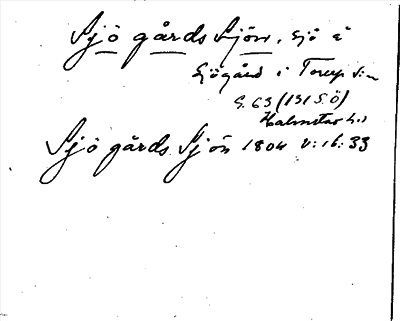 Sjögårds Sjön, sjö å
Sjögård i Torup s:n
S.63 (131 S.Ö)
Halmstad h:d
Sjögårds Sjön 1804 V:16:33